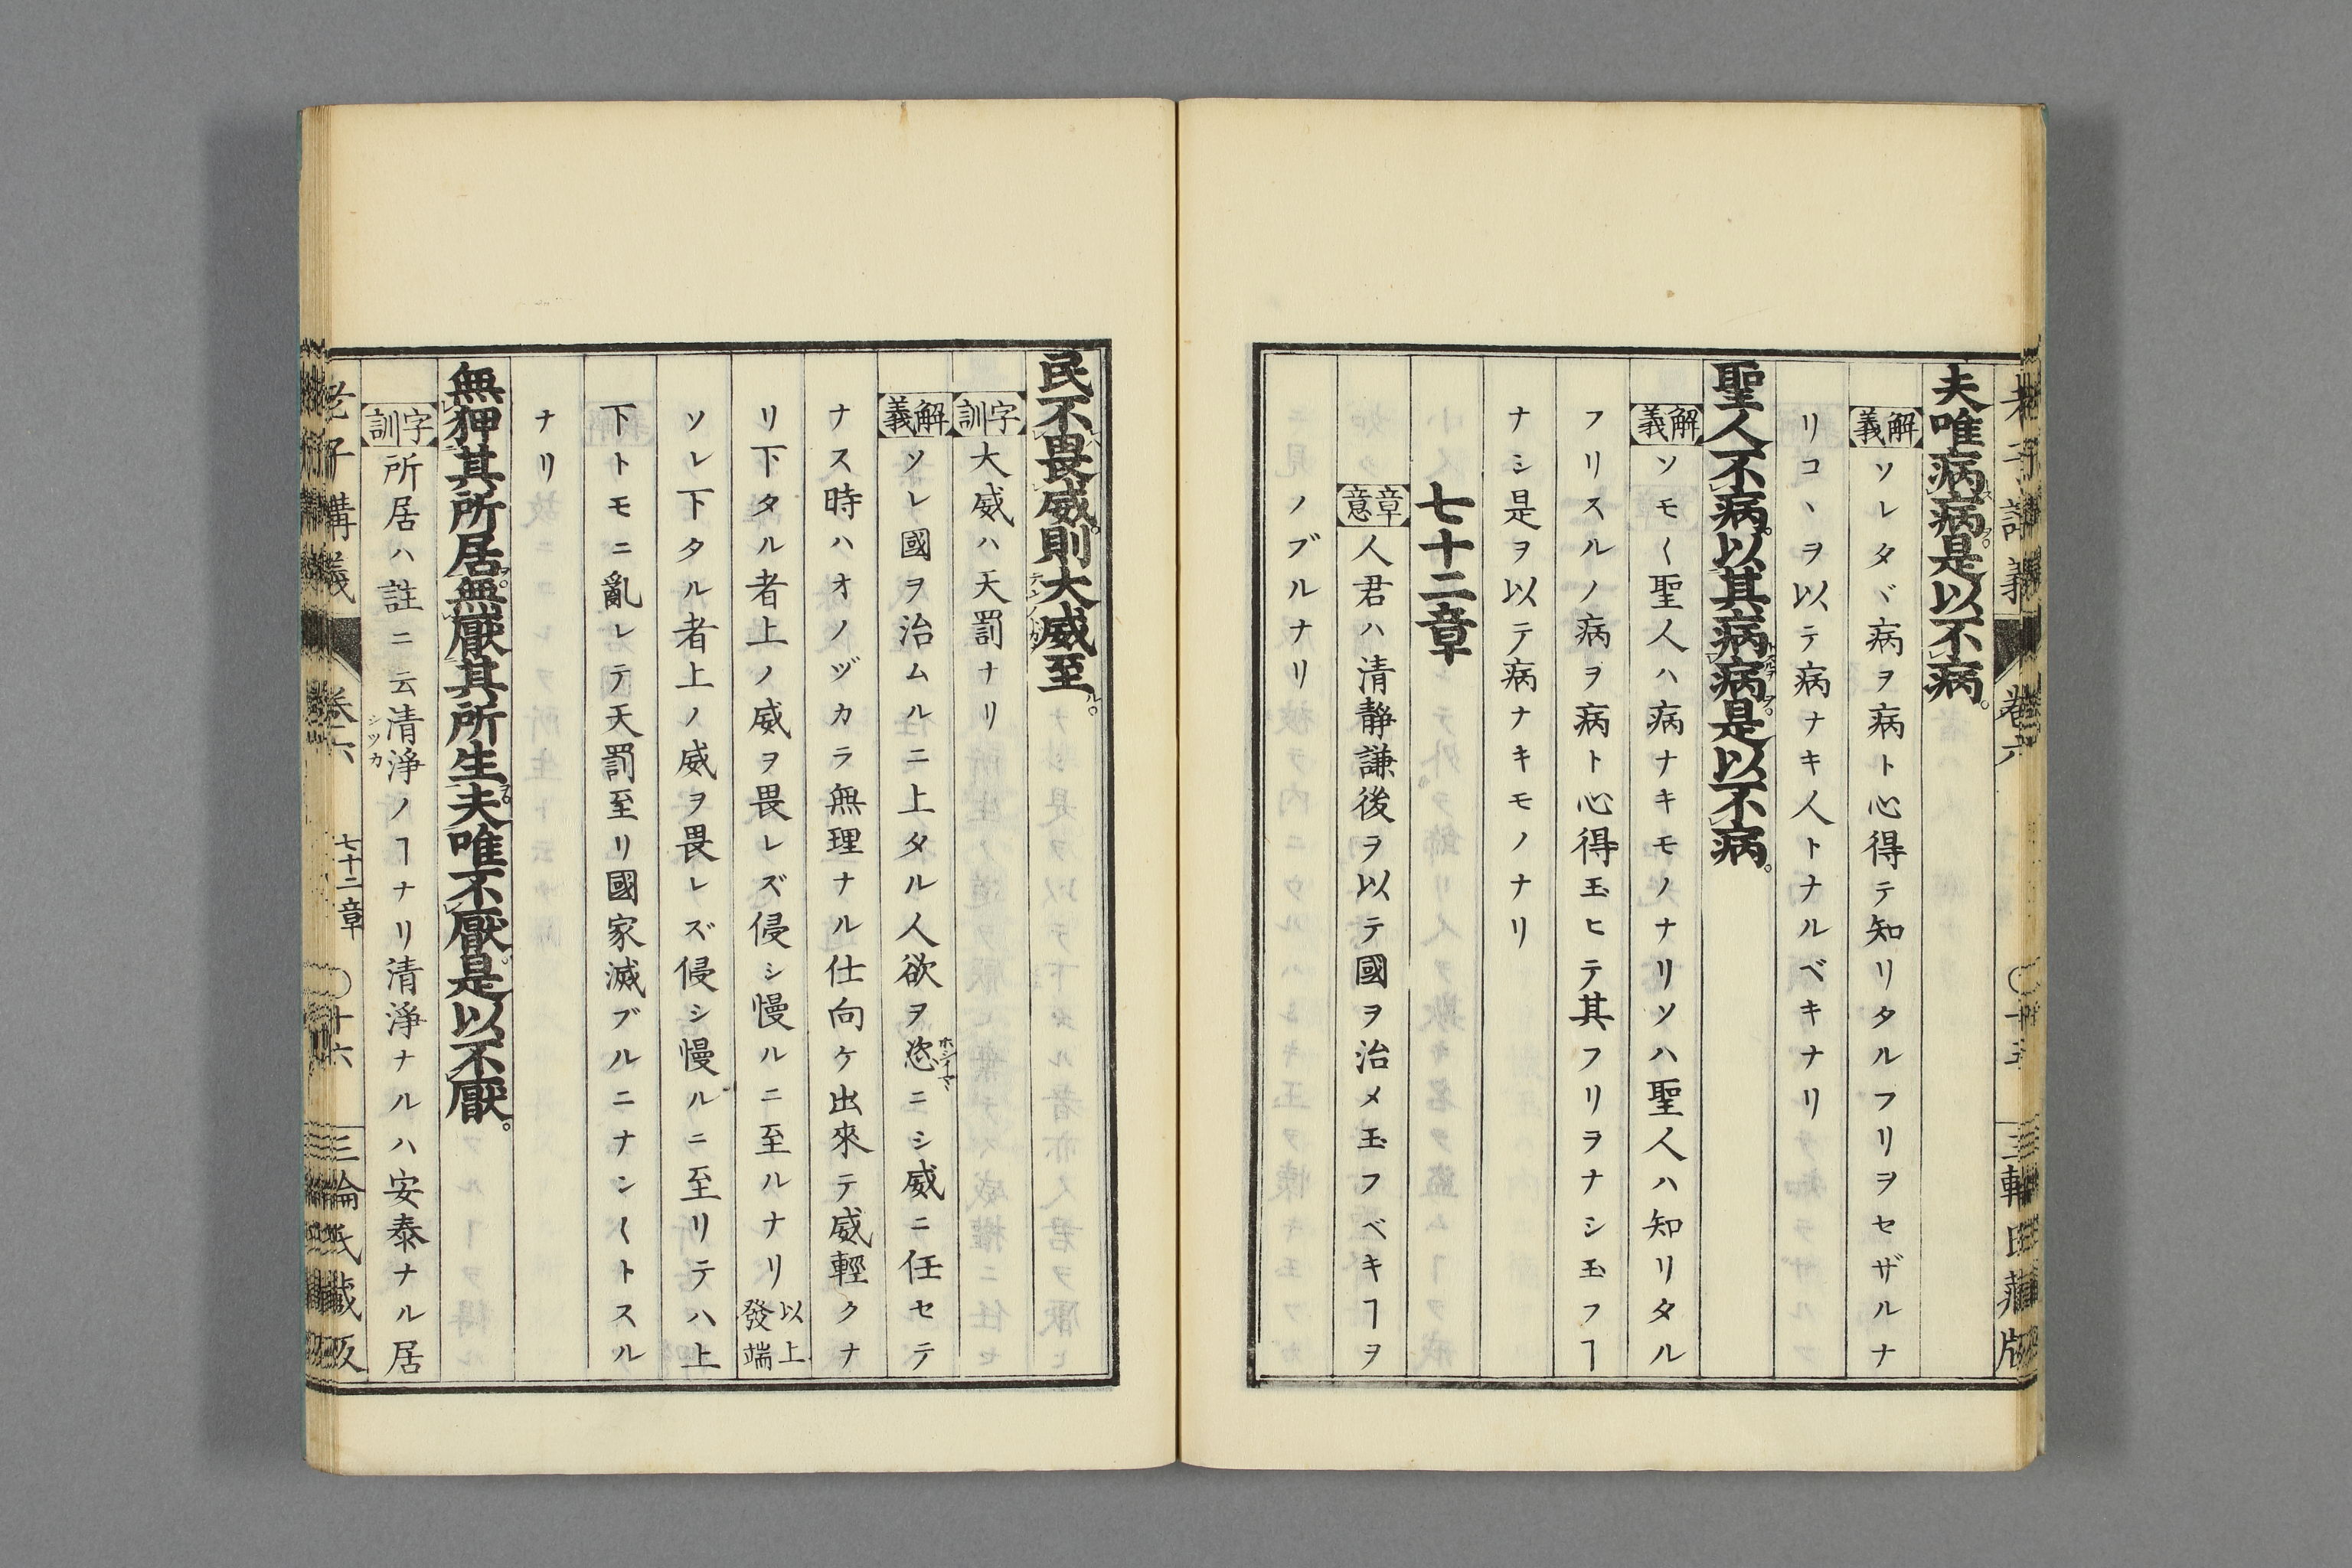 夫唯病病是以不病。
解義 ソレタヾ病ヲ病ト心得テ知リタルフリヲセザルナ
リコヽヲ以テ病ナキ人トナルベキナリ
聖人不病。以其病病。是以不病。
解義 ソモ〱聖人ハ病ナキモノナリソハ聖人ハ知リタル
フリスルノ病ヲ病ト心得玉ヒテ其フリヲナシ玉フヿ
ナシ是ヲ以テ病ナキモノナリ
七十二章
章意 人君ハ清靜謙後ヲ以テ國ヲ治メ玉フベキヿヲ
ノブルナリ
民不畏威。則大威至。
字訓 大威ハ天罰ナリ
解義 ソレ國ヲ治ムルニ上タル人欲ヲ恣ニシ威ニ任セテ
ナス時ハオノヅカラ無理ナル仕向ケ出來テ威輕クナ
リ下タル者上ノ威ヲ畏レズ侵シ慢ルニ至ルナリ以上發端
ソレ下タル者上ノ威ヲ畏レズ侵シ慢ルニ至リテハ上
下トモニ亂レテ天罰至リ國家滅ブルニナン〱トスル
ナリ
無狎其所居。無厭其所生。夫唯不厭。是以不厭。
字訓 所居ハ註ニ云清淨ノヿナリ清淨ナルハ安泰ナル居
老子講義 卷六 七十二章 〇十六 三輪氏藏版